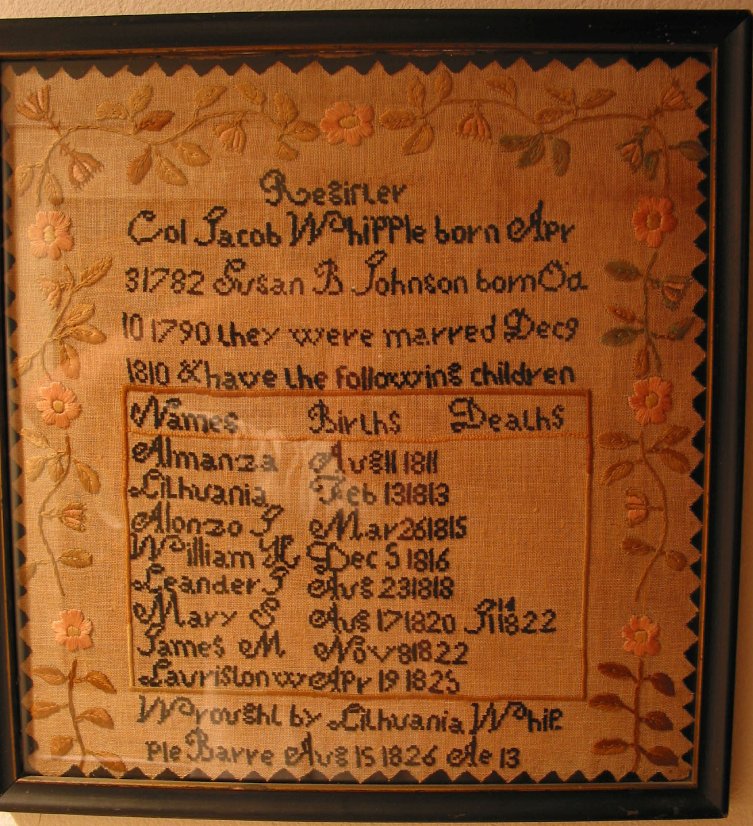 Register
Col Jacob Whipple born Apr
31782 Susan B Johnson born Oct
10 1790 they were marred Dec9
1810 & have the following children
Names Births Deaths
Almanza Aug11 1811
Lithuania Feb 131813
Alonzo J Mar261815
William H Dec 5 1816
Leander J Aug 231818
Mary S Aug 171820 1822
James M Nov81822
Lauriston w Apr 19 1825
Wrought by Lithuania Whip
ple Barre Aug 15 1826 Ae 13